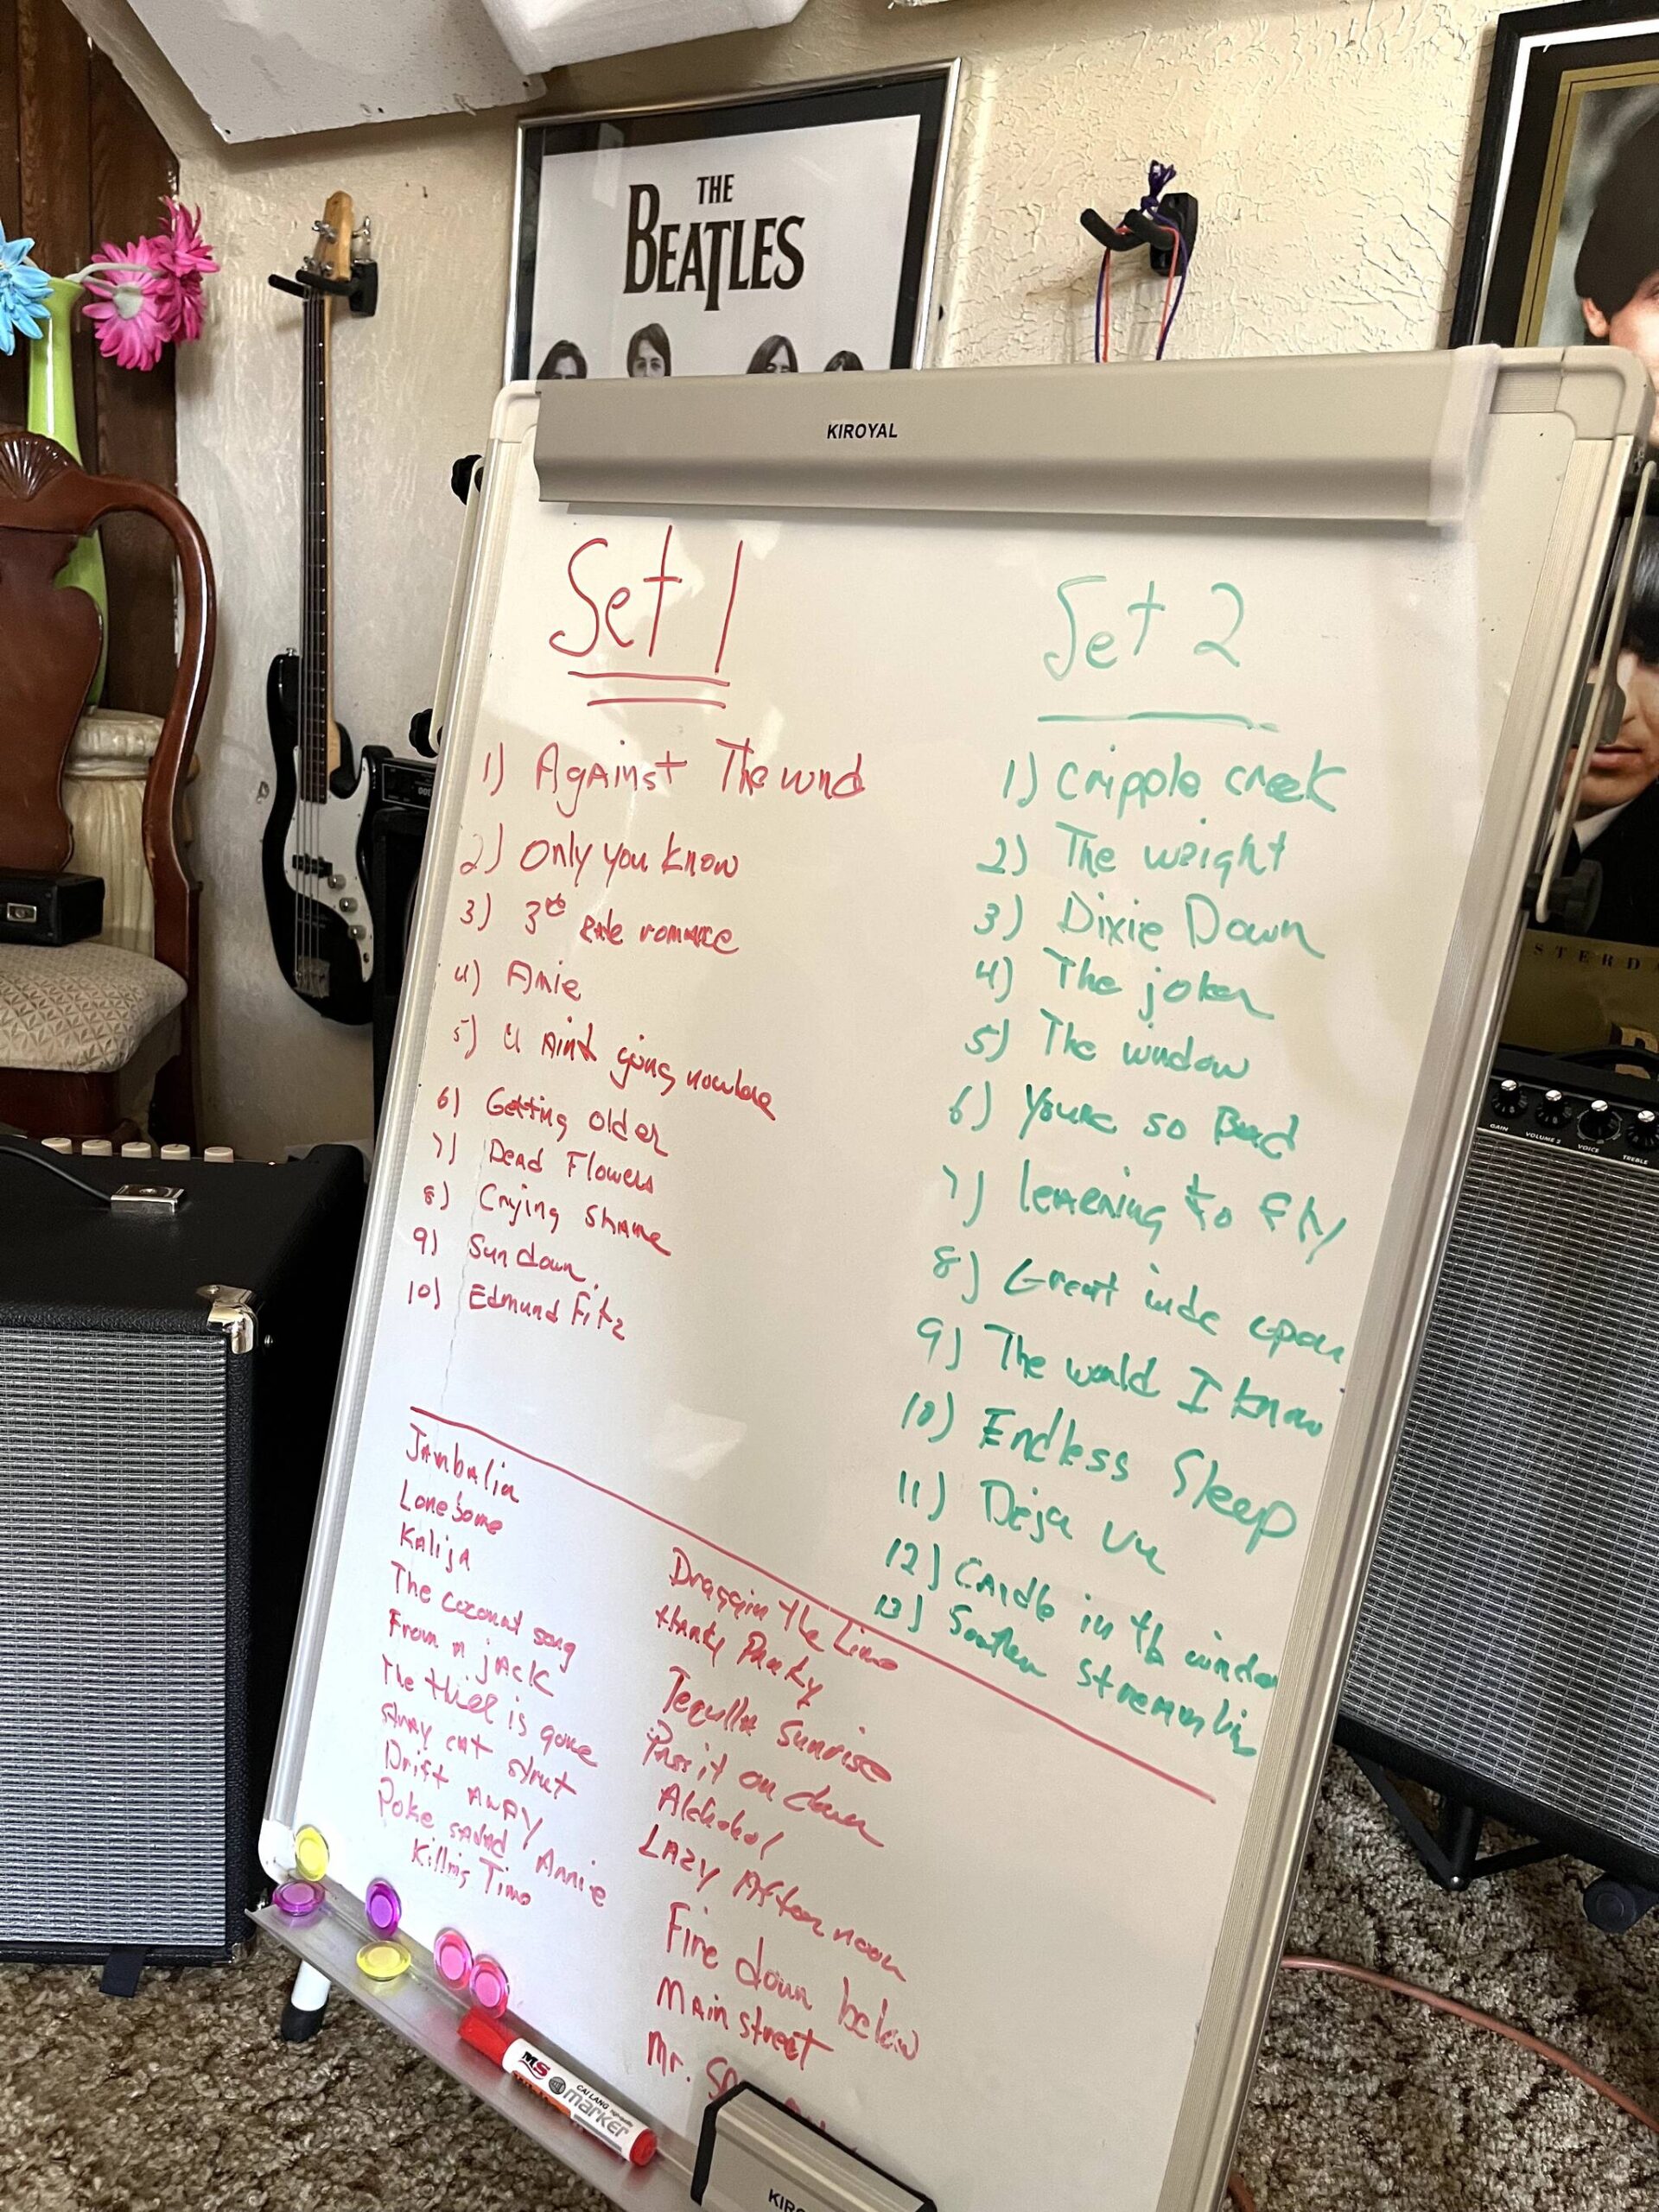 THE
BEATLES
KIROYAL
Set 1
1) Against The wind
2) Only you know
3) 3rd Rate romance
4) Amie
5) U Aint going nowhere
6) Getting older
7) Dead Flowers
8) Crying Shame
9) Sundown
10) Edmund Fitz
Set 2
1) Cripple creek
2) The weight
3) Dixie Down
4) The joker
5) The window
6) Youre so Bad
7) learning to fly
8) Great wide open
9) The world I know
10) Endless Sleep
11) Deja vu
12) Candle in th window
13) Southern Streamlin
Jambalia
Lonesome
Kalija
The coconut song
From a jack
The thief is gone
Stray cat strut
Drift Away
Poke salad Annie
Killing Time
Draggin the Line
Hanky Panky
Tequlla Sunrise
Pass it on down
Alchohol
LAZY Afternoon
Fire down below
Main street
Mr.
STERDA
GAIN
VOLUME 2
VOICE
TREBLE
MS
CAI LANG
marker
KIRO